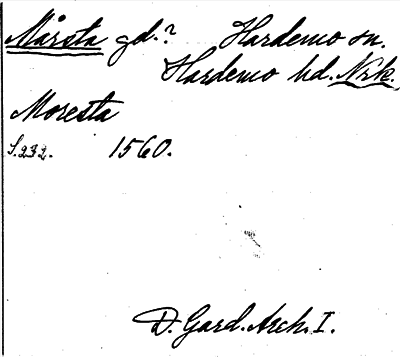 Mårsta gd.? Hardemo sn.
Hardemo hd. Nrk.
Moresta
S. 232. 1560.
D. Gard. Arch. I.